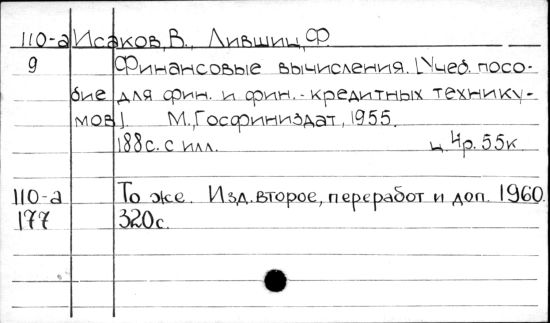 110-а Исаков, В., Лившиц, Ф.
9 Финансовые вычисления. [Учеб. посо-
бие для фин. и фин.-кредитных технику-
мов]. М., Госфиниздат, 1955.
188с. с илл. ц. 4р. 55к.
110-а То же. Изд. второе, переработ и доп. 1960.
177 320с.